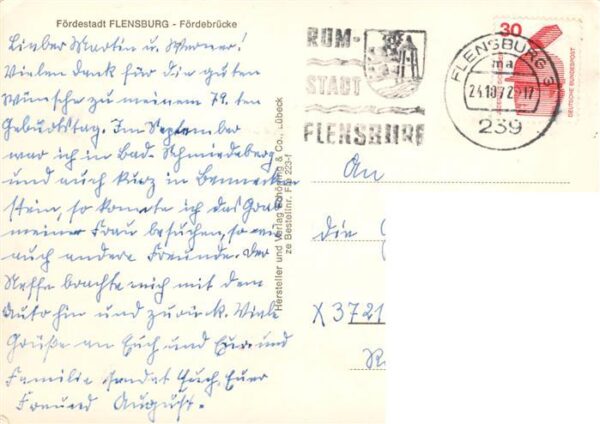 Fördestadt FLENSBURG - Fördebrücke
Lieber Martin u. Werner!
Vielen Dank für die guten
Wünsche zu meinem 79. ten
Geburtstag. Im September
war ich in Bad-Schmiedeberg
und auch kurz in Benneckenstein,
so konnte ich das Grab
meiner Frau besuchen, so wie
auch andere Freunde. Der
Neffe brachte mich mit dem
Auto hin und zurück. Viele
Grüße an Euch und Eure und
Familie sendet Euch, Euer
Freund August.
Hersteller und Verlag Schöning & Co., Lübeck
ze Bestellnr. Fle 223-f
RUM-
STADT
FLENSBURG
FLENSBURG 3
ma
239
30
DEUTSCHE BUNDESPOST
An
die
X 3721